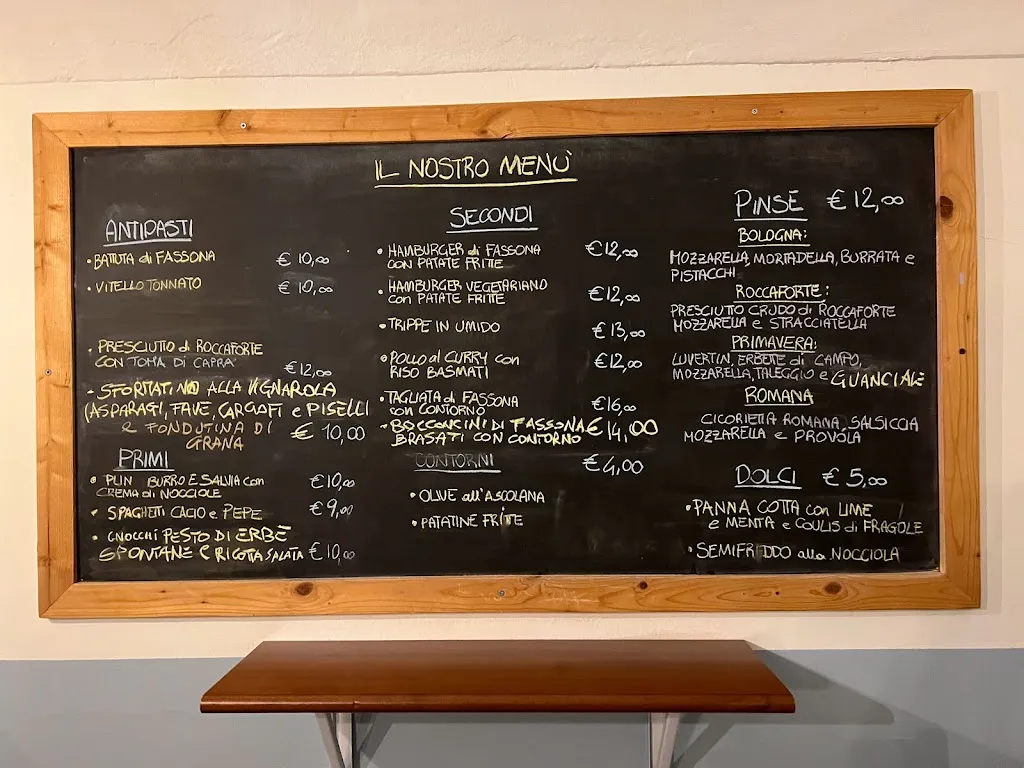 IL NOSTRO MENÙ
ANTIPASTI
• BATTUTA di FASSONA € 10,00
• VITELLO TONNATO € 10,00
• PRESCIUTTO di ROCCAFORTE
CON TOMA DI CAPRA € 12,00
• SFORMATINO ALLA VIGNAROLA
(ASPARAGI, FAVE, CARCIOFI e PISELLI
E FONDUTINA DI
GRANA € 10,00
PRIMI
• PLIN BURRO E SALVIA con
CREMA di NOCCIOLE € 10,00
• SPAGHETTI CACIO e PEPE € 9,00
• GNOCCHI PESTO DI ERBE
SPONTANE E RICOTTA SALATA € 10,00
SECONDI
• HAMBURGER di FASSONA
CON PATATE FRITTE € 12,00
• HAMBURGER VEGETARIANO
con PATATE FRITTE € 12,00
• TRIPPE IN UMIDO € 13,00
• POLLO al CURRY con
RISO BASMATI € 12,00
• TAGLIATA di FASSONA
con CONTORNO € 16,00
• BOCCONCINI DI FASSONA
BRASATI CON CONTORNO € 14,00
CONTORNI € 4,00
• OLIVE all'ASCOLANA
• PATATINE FRITTE
PINSE € 12,00
BOLOGNA:
MOZZARELLA, MORTADELLA, BURRATA e
PISTACCHI
ROCCAFORTE:
PRESCIUTTO CRUDO di ROCCAFORTE
MOZZARELLA e STRACCIATELLA
PRIMAVERA:
LUVERTIN, ERBETTE di CAMPO,
MOZZARELLA, TALEGGIO e GUANCIALE
ROMANA
CICORIETTA ROMANA, SALSICCIA
MOZZARELLA e PROVOLA
DOLCI € 5,00
• PANNA COTTA con LIME
e MENTA e COULIS di FRAGOLE
• SEMIFREDDO alla NOCCIOLA